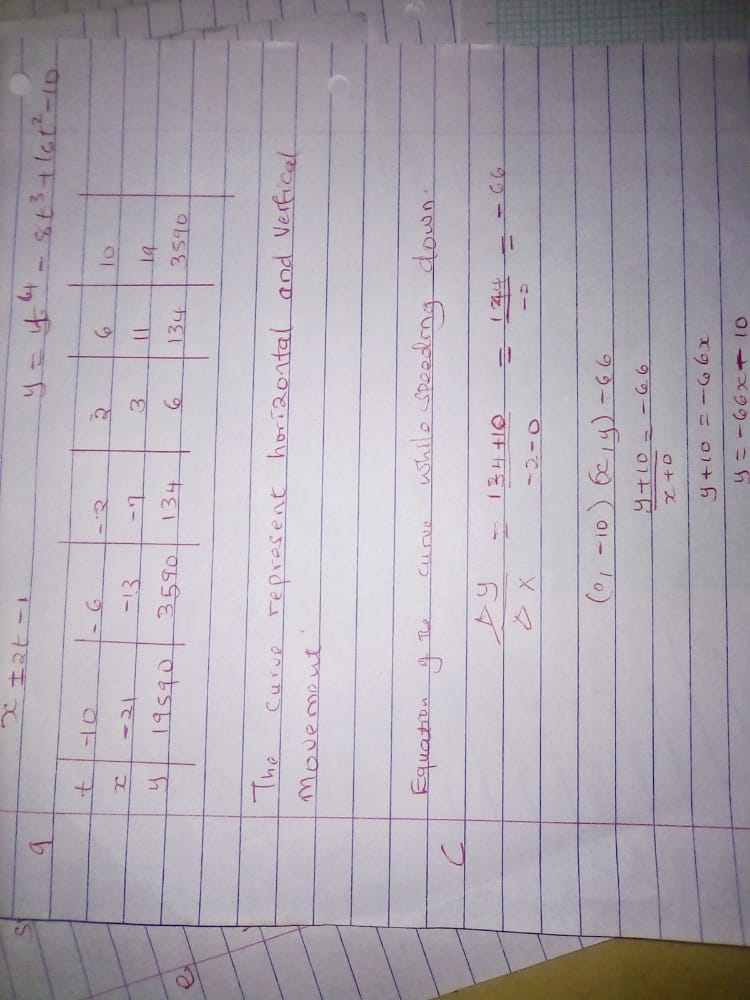 x = 2t - 1 y = t⁴ - 8t³ + 16t² - 10
9
t -10 -6 -2 2 6 10
x -21 -13 -7 3 11 19
y 19590 3590 134 6 134 3590
The curve represent horizontal and vertical
movement
C Equation of the curve while speeding down.
Δy/Δx = 134+10/-2-0 = 144/-2 = -66
(0, -10) (x, y) -66
y+10/x+0 = -66
y+10 = -66x
y = -66x + 10